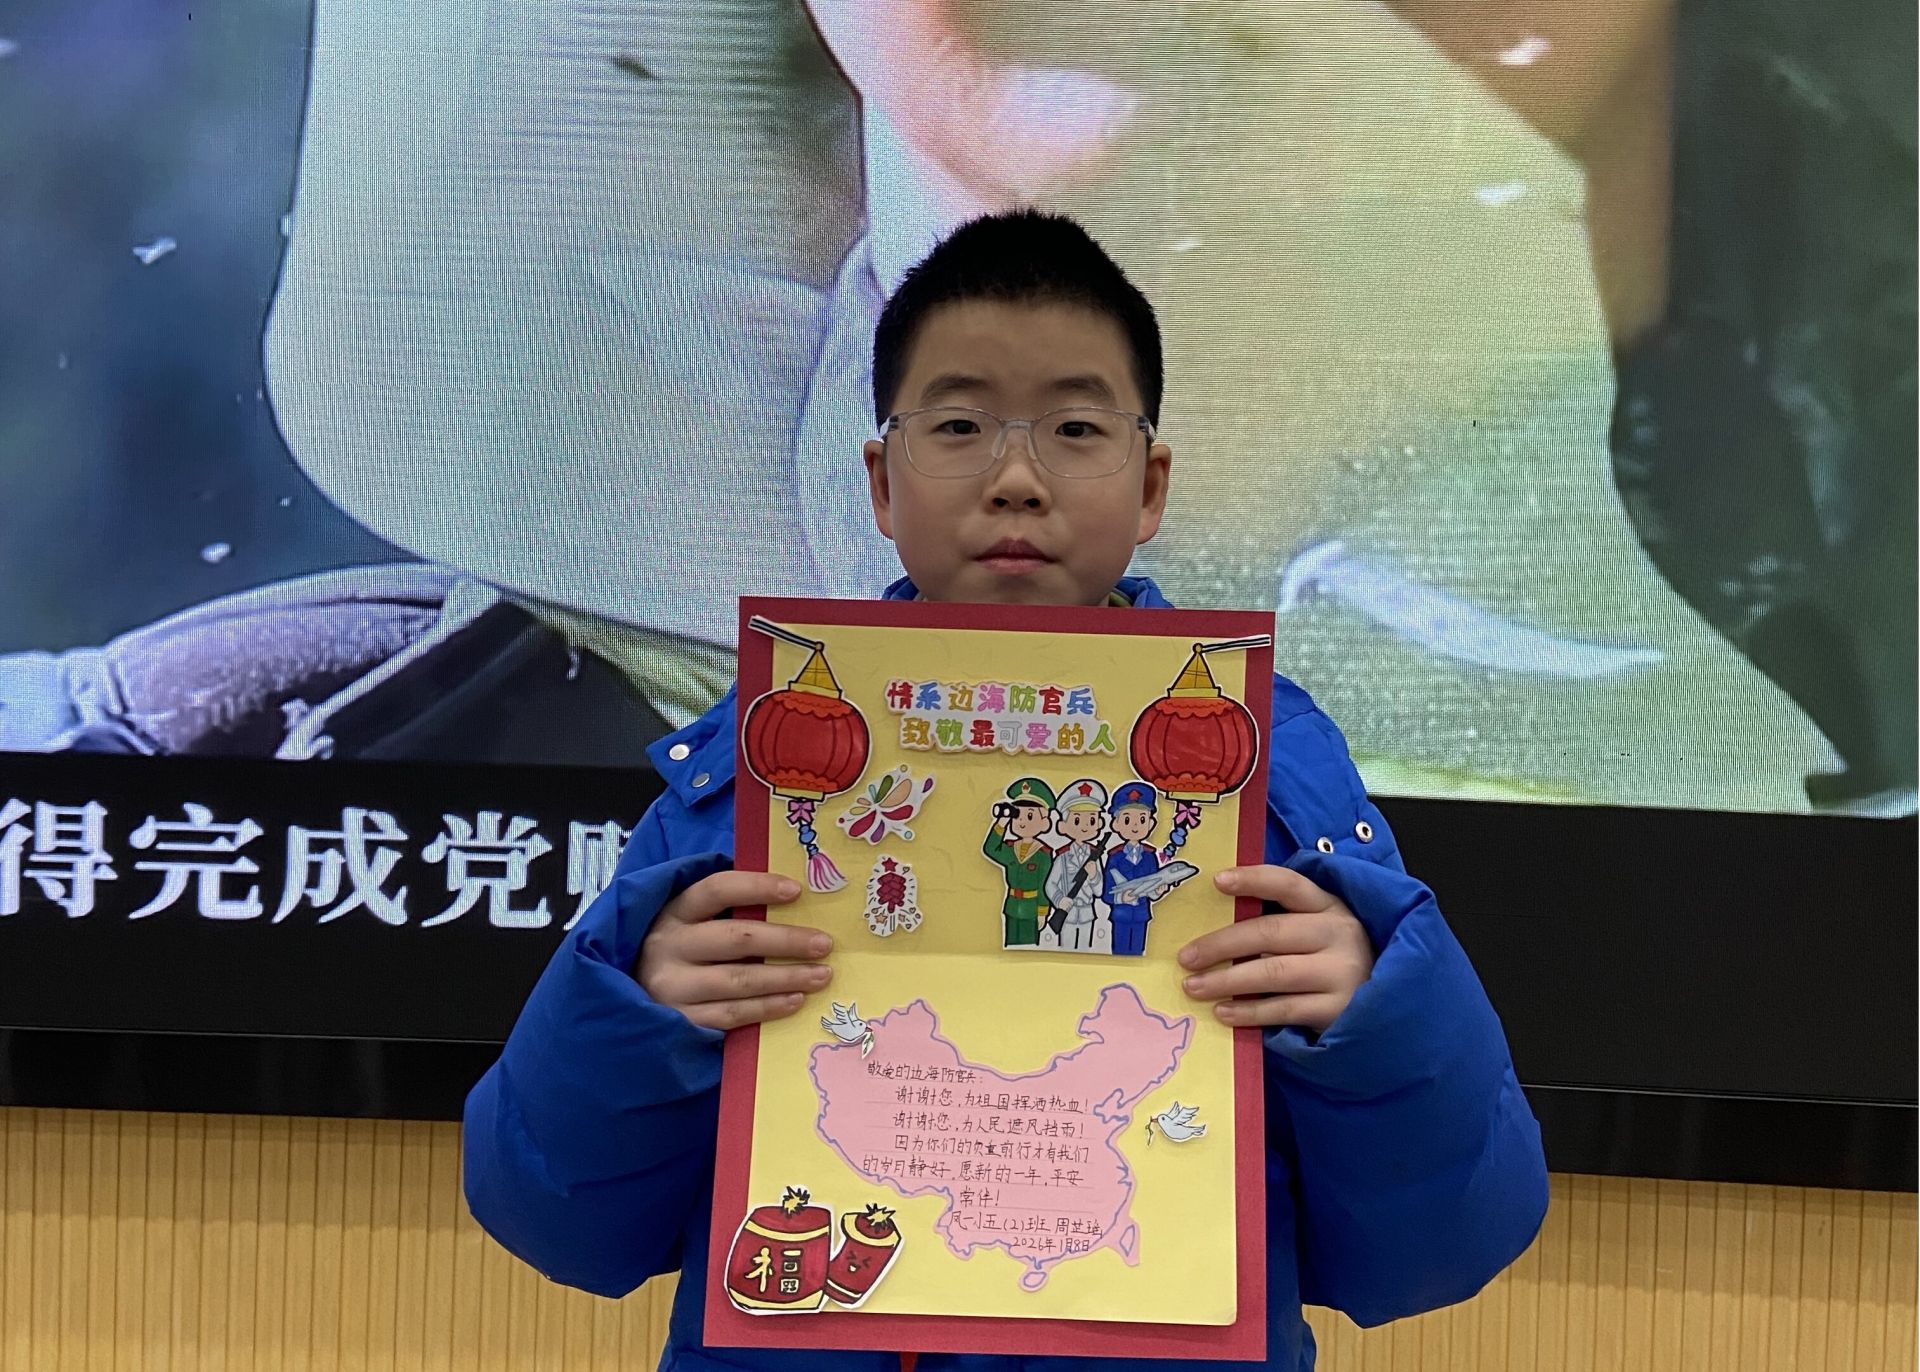 得完成党
情系边海防官兵
致敬最可爱的人
敬爱的边海防官兵：
谢谢您，为祖国挥洒热血！
谢谢您，为人民遮风挡雨！
因为你们的负重前行才有我们
的岁月静好，愿新的一年，平安
常伴！
凤一小五（2）班 周芷瑶
2026年1月8日
福